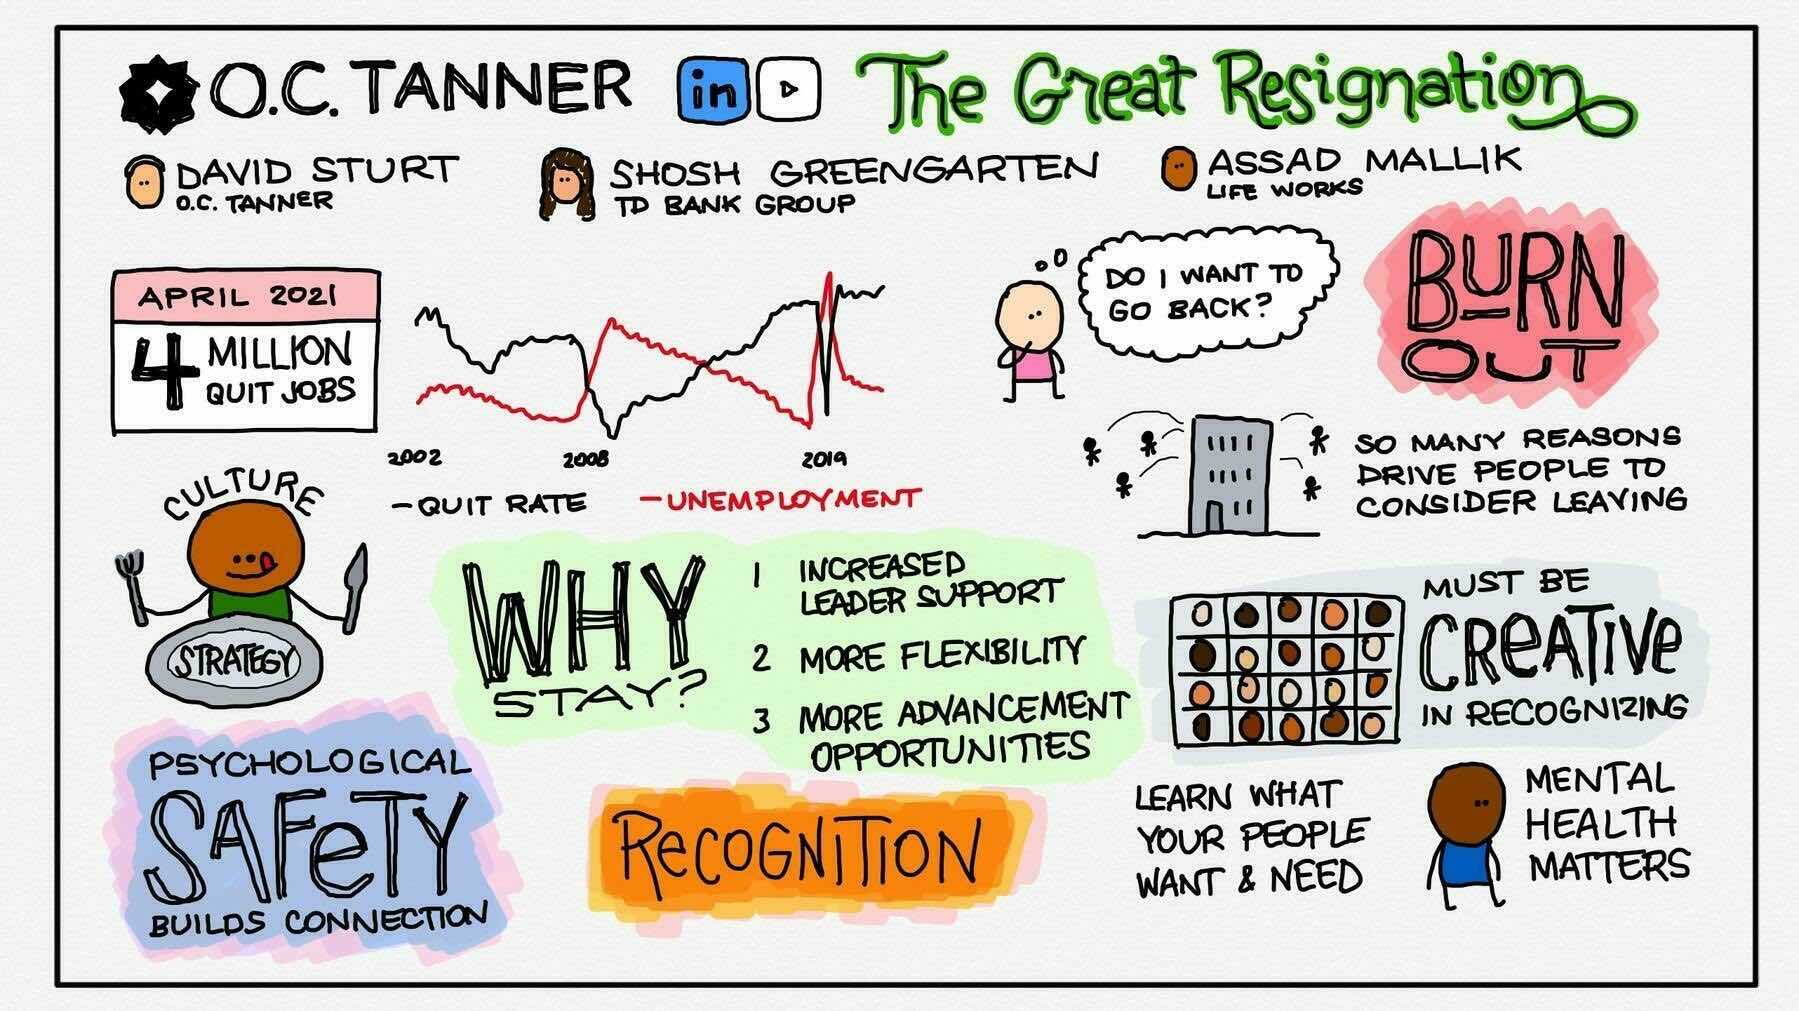 O.C. TANNER
in
The Great Resignation
DAVID STURT
O.C. TANNER
SHOSH GREENGARTEN
TD BANK GROUP
ASSAD MALLIK
LIFE WORKS
APRIL 2021
4 MILLION
QUIT JOBS
2002 2008 2019
-QUIT RATE -UNEMPLOYMENT
DO I WANT TO
GO BACK?
BURN
OUT
SO MANY REASONS
DRIVE PEOPLE TO
CONSIDER LEAVING
CULTURE
STRATEGY
WHY
STAY?
1 INCREASED
LEADER SUPPORT
2 MORE FLEXIBILITY
3 MORE ADVANCEMENT
OPPORTUNITIES
MUST BE
CREATIVE
IN RECOGNIZING
PSYCHOLOGICAL
SAFETY
BUILDS CONNECTION
RECOGNITION
LEARN WHAT
YOUR PEOPLE
WANT & NEED
MENTAL
HEALTH
MATTERS